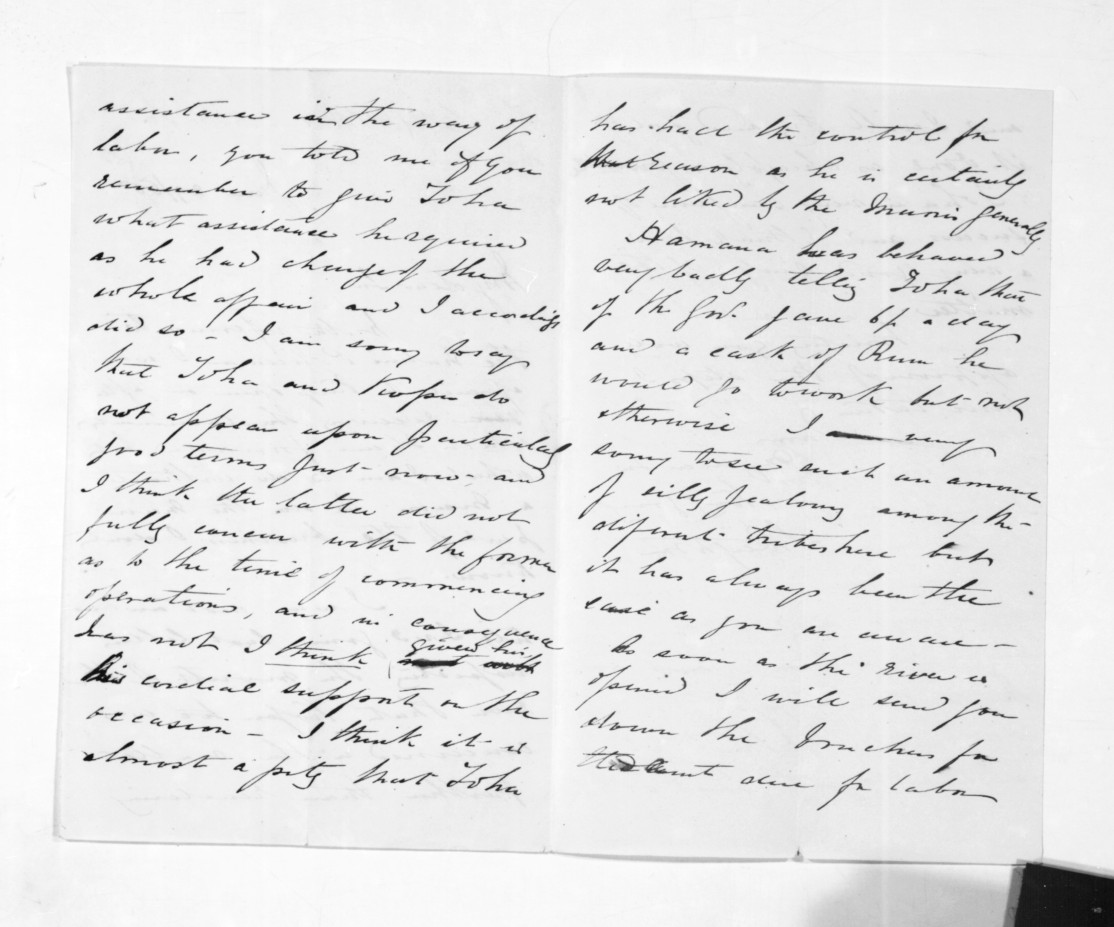 assistance in the way of
labor, you told me if you
remember to give Toha
what assistance he required
as he had charge of the
whole affair and I accordingly
did so - I am sorry to say
that Toha and Kopu do
not appear upon particularly
good terms just now - and
I think the latter did not
fully concur with the former
as to the time of commencing
operations, and in consequence
has not I think given his
cordial support on the
occasion - I think it is
almost a pity that Toha
has had the control for
reason as he is certainly
not liked by the Maoris generally
Hamana has behaved
very badly telling Toha that
if the Govt gave 6/- a day
and a cask of Rum he
would go to work but not
otherwise I very
sorry to see such an amount
of silly jealousy among the
diferent tribes here but
it has always been the
case as you are aware -
As soon as the river is
opened I will send you
down the vouchers for
the amt due for labor